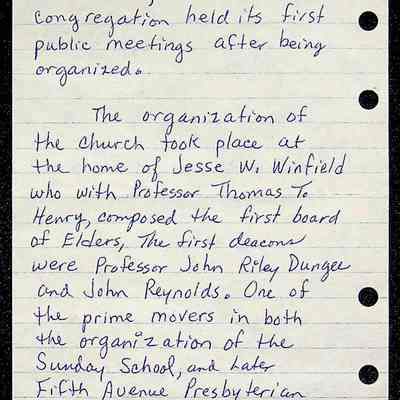 Congregation held its first
public meetings after being
organized.
The organization of
the church took place at
the home of Jesse W. Winfield
who with Professor Thomas T.
Henry, composed the first board
of Elders, The first deacons
were Professor John Riley Dungee
and John Reynolds. One of
the prime movers in both
the organization of the
Sunday School, and later
Fifth Avenue Presbyterian